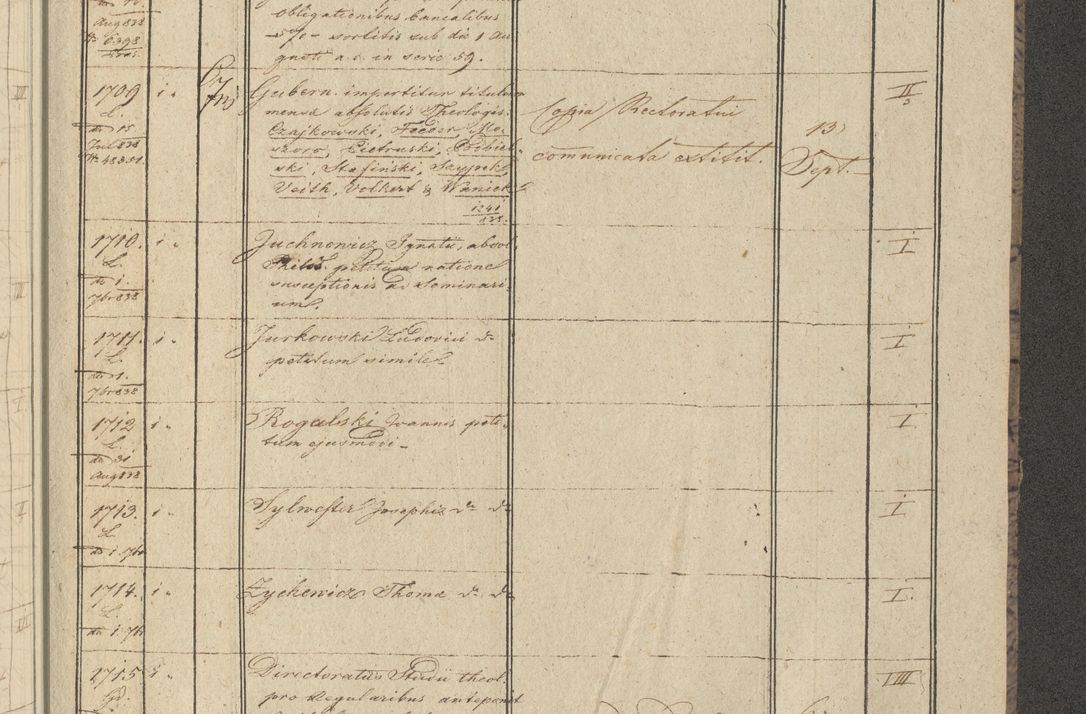 Aug 838
6398
obligationibus bancalibus
5% sortitis sub die 1 Au
gusti a. c. in serie 59.
1709
i
Gubern. impertitur titulum
mensæ absolutis Theologis:
Czajkowski, Feder, Mo-
szoro, Pietruski,
ski, Stefiński,
Veith, Volkert &
15
Jul 838
Nr 48351
Copia Rectoratui
communicata extitit.
13
Sept.
II
1710.
i
L.
do 1.
7br 838
Juchnowicz Ignatii, absol.
Philos. petitum ratione
susceptionis ad Seminari-
um.
I
1711.
i
L.
do 1.
7br 838
Jurkowski Ludovici do
petitum simile.
I
1712
i
L.
do 31
Aug 838
Rogalski Joannis peti-
tum ejusmodi
I
1713.
i
L.
do 1. 7br
Sylwester Josephi do do
I
1714.
i
L.
do 1. 7br
Zyckewicz Thoma do do
I.
1715
i
Directoratus Studii theol.
pro Regularibus anteponit
VIII